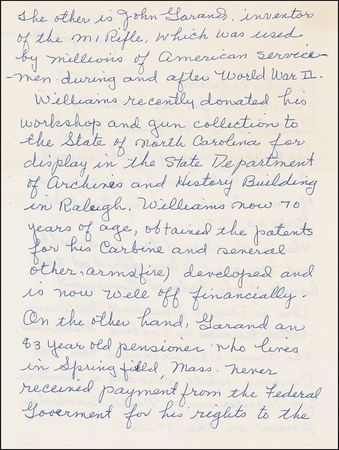 The other is John Garand, inventor
of the M1 Rifle, which was used
by millions of American service-
men during and after World War II.
Williams recently donated his
workshop and gun collection to
the State of North Carolina for
display in the State Department
of Archives and History Building
in Raleigh. Williams now 70
years of age, obtained the patents
for his Carbine and several
other arms(fire) developed and
is now well off financially.
On the other hand, Garand an
83 year old pensioner who lives
in Springfield, Mass. never
received payment from the Federal
Goverment for his rights to the